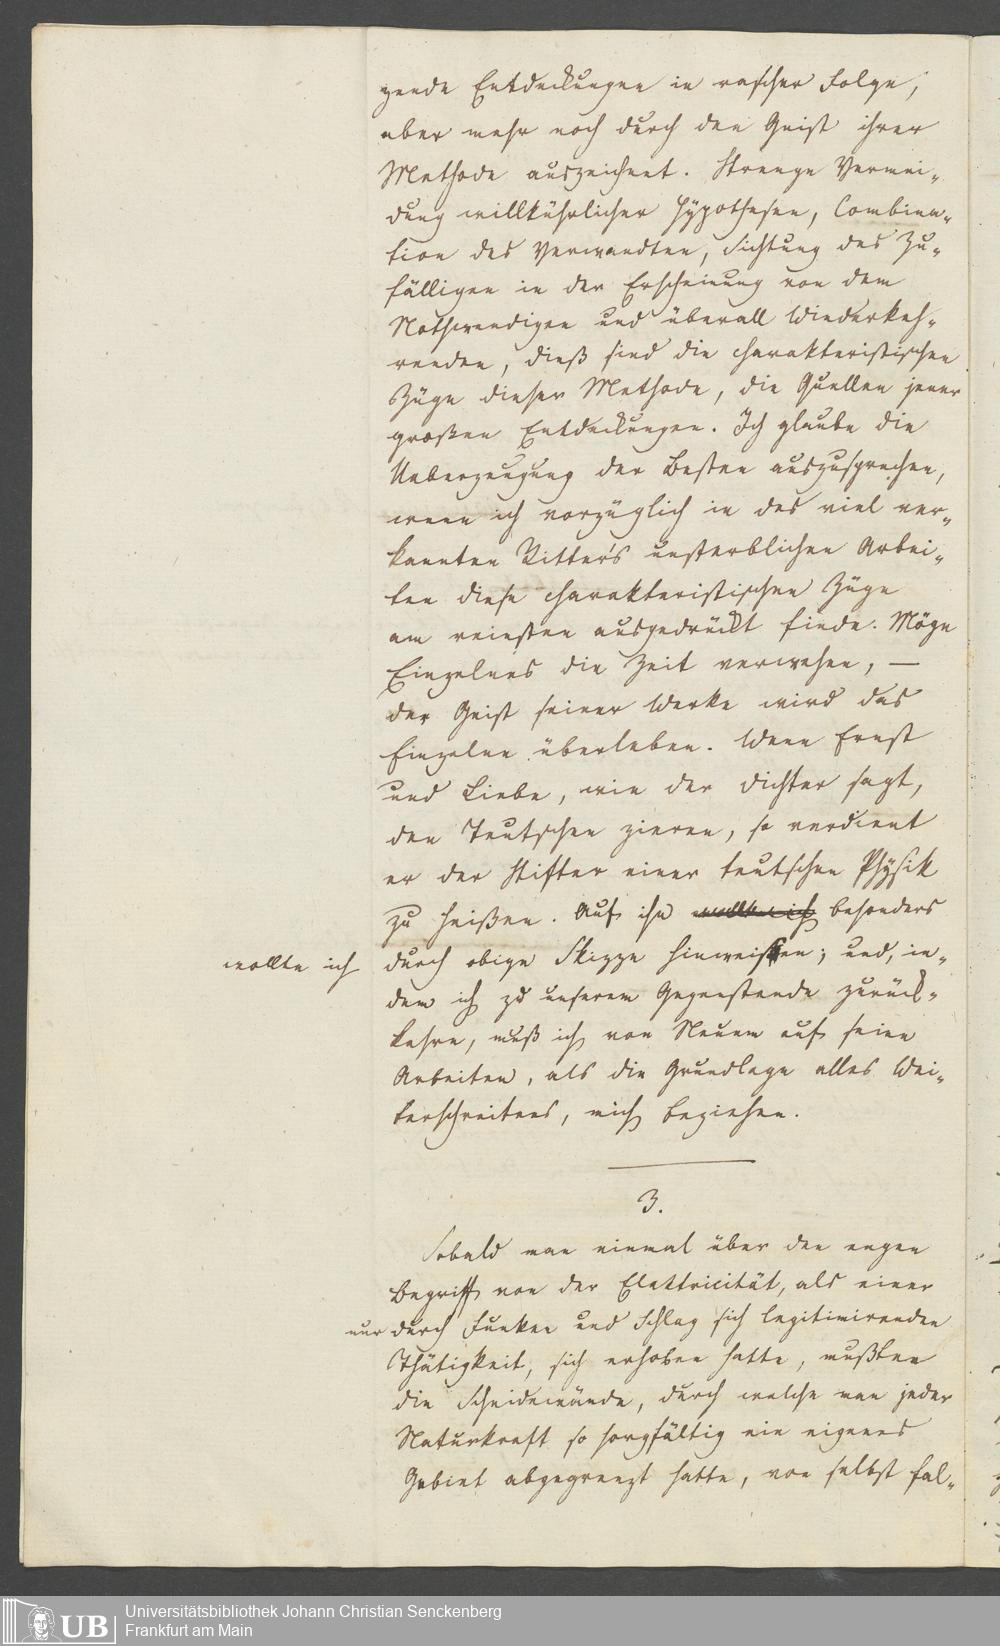 gende Entdeckungen in rascher Folge,
aber mehr noch durch den Geist ihrer
Methode auszeichnet. Strenge Vermei-
dung willkührlicher Hÿpothesen, Combina-
tion des Verwandten, Sichtung des Zu-
fälligen in der Erscheinung von dem
Nothwendigen und überall Wiederkeh-
renden, dieß sind die charakteristischen
Züge dieser Methode, die Quellen jener
großen Entdeckungen. Ich glaube die
Ueberzeugung der Besten auszusprechen,
wenn ich vorzüglich in des viel ver-
kannten Ritter's unsterblichen Arbei-
ten diese charakteristischen Züge
am reinsten ausgedrückt finde. Möge
Einzelnes die Zeit verwehen, —
der Geist seiner Werke wird das
Einzelne überleben. Wenn Ernst
und Liebe, wie der Dichter sagt,
den Teutschen zieren, so verdient
er der Stifter einer teutschen Phÿsik
zu heißen. Auf ihn wollte ich besonders
wollte ich durch obige Skizze hinweisen; und, in-
dem ich zu unserem Gegenstande zurück-
kehre, muß ich von Neuem auf seine
Arbeiten, als die Grundlage alles Wei-
terschreitens, mich beziehen.
3.
Sobald man einmal über den engen
Begriff von der Elektricität, als einer
nur durch Funken und Schlag sich legitimirenden
Thätigkeit, sich erhoben hatte, mußten
die Scheidewände, durch welche man jeder
Naturkraft so sorgfältig ein eigenes
Gebiet abgegrenzt hatte, von selbst fal-
UB
Universitätsbibliothek Johann Christian Senckenberg
Frankfurt am Main